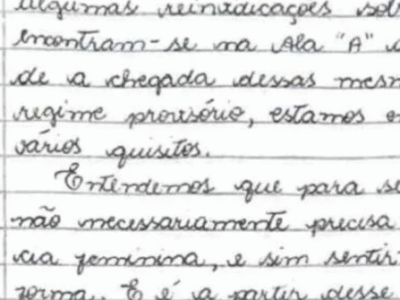 algumas reinvidicações sob
encontram-se na Ala "A" d
de a chegada dessas mesm
regime provisório, estamos e
vários quisitos.
Entendemos que para se
não necessariamente precisa
cia feminina, e sim sentir
forma. E é a partir desse